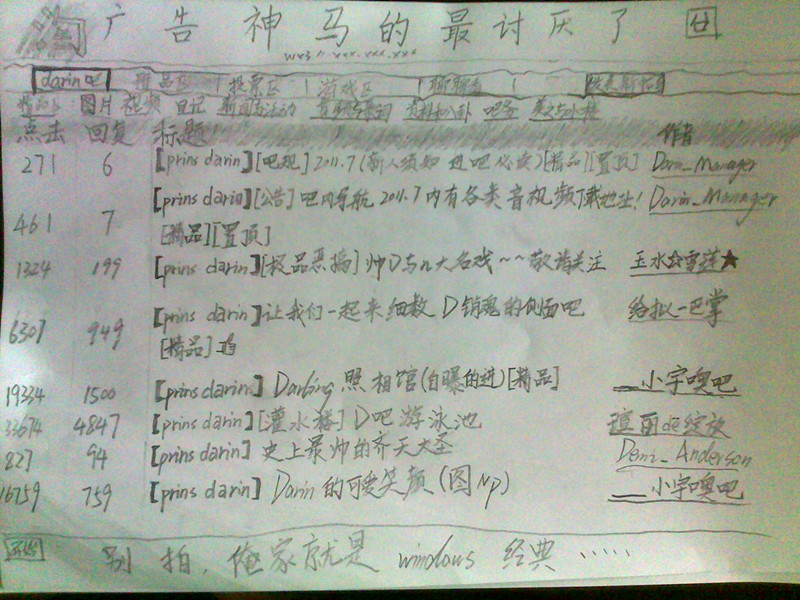 广告神马的最讨厌了
darin吧 精品区 投票区 游戏区
图片 视频 日记 吧务
点击 回复 标题 作者
271 6 [prins darin][吧规]2011.7(新人须知 进吧必读)[精品][置顶] Darin_Manager
461 7 [prins darin][公告]吧内导航 2011.7内有各类音视频下载地址! Darin_Manager
[精品][置顶]
1324 199 [prins darin][极品恶搞]帅D与n大名戏~~敬请关注 玉水☆雪莲★
6307 949 [prins darin]让我们一起来细数D销魂的侧面吧 给拟一巴掌
[精品]
19334 1500 [prins darin] Darling照相馆(自曝的进)[精品] __小宇噢吧
33674 4847 [prins darin][灌水楼]D吧游泳池 瑄丽de绽放
827 94 [prins darin] 史上最帅的齐天大圣 Demi_Anderson
16759 759 [prins darin] Darin的可爱笑颜(图Np) __小宇噢吧
开始 别拍,俺家就是 windows 经典……